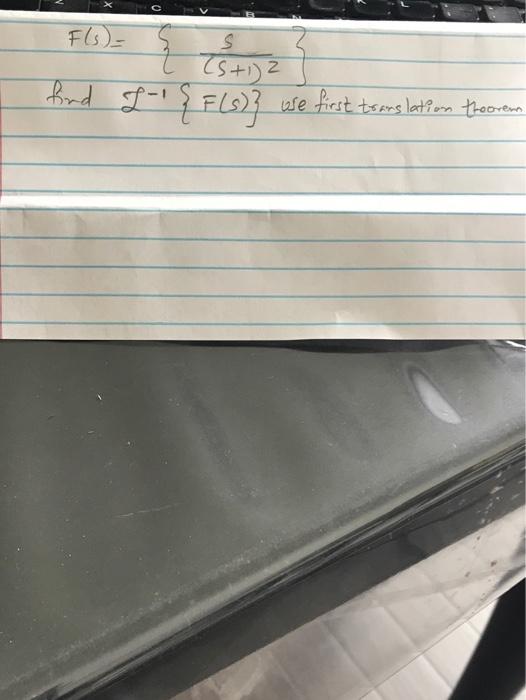 X C V N L
F(s)= { s / (s+1)2 }
find L-1 { F(s)} use first translation theorem